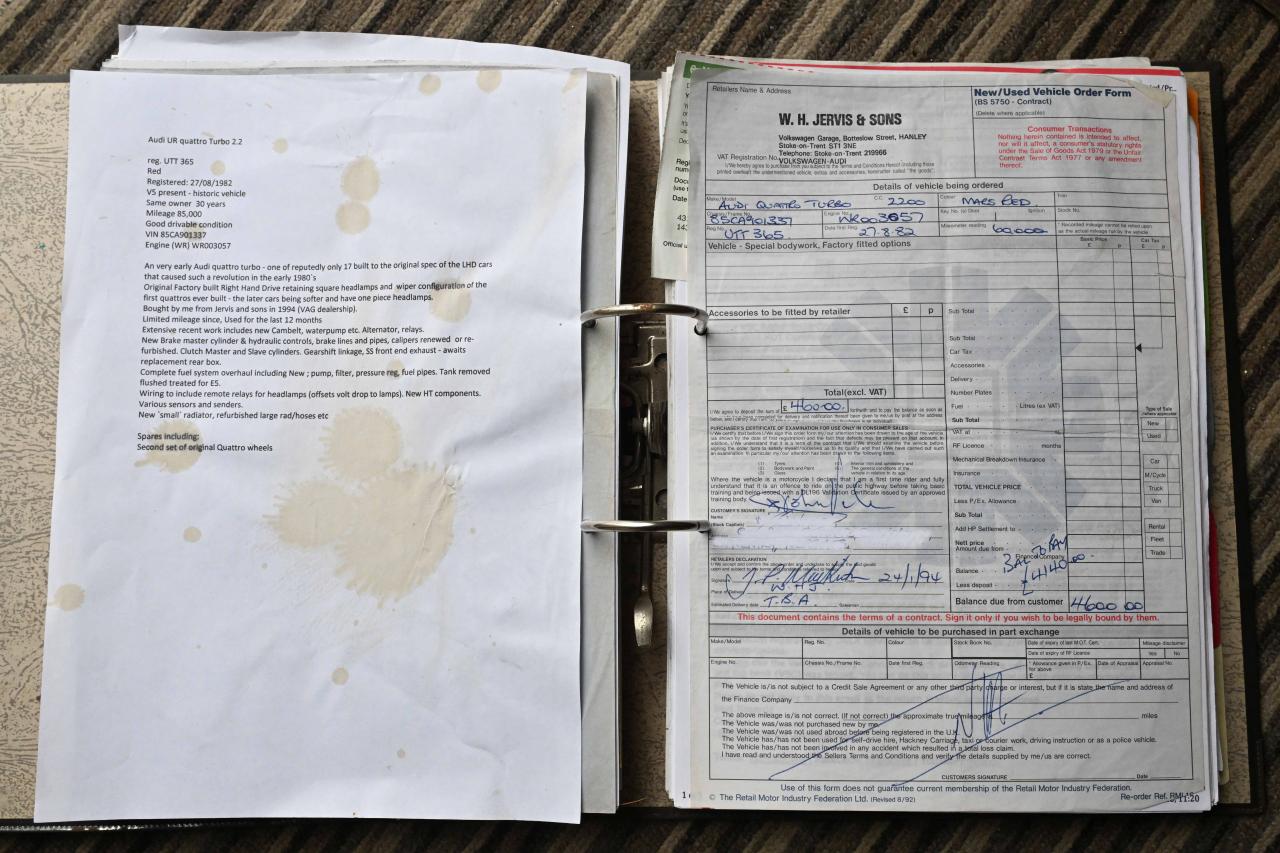 Audi UR quattro Turbo 2.2
reg. UTT 365
Red
Registered: 27/08/1982
V5 present - historic vehicle
Same owner 30 years
Mileage 85,000
Good drivable condition
VIN 85CA901337
Engine (WR) WR003057
An very early Audi quattro turbo - one of reputedly only 17 built to the original spec of the LHD cars
that caused such a revolution in the early 1980`s
Original Factory built Right Hand Drive retaining square headlamps and wiper configuration of the
first quattros ever built - the later cars being softer and have one piece headlamps.
Bought by me from Jervis and sons in 1994 (VAG dealership).
Limited mileage since, Used for the last 12 months
Extensive recent work includes new Cambelt, waterpump etc. Alternator, relays.
New Brake master cylinder & hydraulic controls, brake lines and pipes, calipers renewed or re-
furbished. Clutch Master and Slave cylinders. Gearshift linkage, SS front end exhaust - awaits
replacement rear box.
Complete fuel system overhaul including New ; pump, filter, pressure reg, fuel pipes. Tank removed
flushed treated for E5.
Wiring to include remote relays for headlamps (offsets volt drop to lamps). New HT components.
Various sensors and senders.
New `small` radiator, refurbished large rad/hoses etc
Spares including:
Second set of original Quattro wheels
Retailers Name & Address
W. H. JERVIS & SONS
Volkswagen Garage, Botteslow Street, HANLEY
Stoke-on-Trent ST1 3NE
Telephone: Stoke-on-Trent 219966
VAT Registration No. VOLKSWAGEN-AUDI
I/We hereby agree to purchase from you subject to the Terms and Conditions Hereof (including those
printed overleaf) the undermentioned vehicle, extras and accessories, hereinafter called "the goods".
New/Used Vehicle Order Form
(BS 5750 - Contract)
(Delete where applicable)
Consumer Transactions
Nothing herein contained is intended to affect,
nor will it affect, a consumer's statutory rights
under the Sale of Goods Act 1979 or the Unfair
Contract Terms Act 1977 or any amendment
thereof.
Details of vehicle being ordered
Make/Model AUDI QUATTRO TURBO C.C. 2200 Colour MARS RED Trim
Chassis/Frame No. 85CA901337 Engine No. WR003057 Key No. (s) Door Ignition Stock No.
Reg No. UTT 365 Date first Reg. 27.8.82 Milometer reading 60,000 * Recorded mileage cannot be relied upon
as the actual mileage run by the vehicle
Vehicle - Special bodywork, Factory fitted options
Basic Price Car Tax
£ p £ p
Accessories to be fitted by retailer £ p
Total(excl. VAT)
I/We agree to deposit the sum of £ 460.00. forthwith and to pay the balance as soon as
PURCHASER'S CERTIFICATE OF EXAMINATION FOR USE ONLY IN CONSUMER SALES
(1) Tyres
(2) Bodywork and Paint
(3) Glass
Where the vehicle is a motorcycle I declare that I am a first time rider and fully
understand that it is an offence to ride on the public highway before taking basic
training and being issued with a DL196 Validation Certificate issued by an approved
training body.
CUSTOMER'S SIGNATURE
Name
(Block Capitals)
RETAILERS DECLARATION
24/1/94
Place of Delivery W H J
Estimated Delivery date T.B.A. Salesman
Sub Total
Sub Total
Car Tax
Accessories
Delivery
Number Plates
Fuel Litres (ex VAT)
Sub Total
VAT at %
RF Licence months
Mechanical Breakdown Insurance
Insurance
TOTAL VEHICLE PRICE
Less P/Ex. Allowance
Sub Total
Add HP Settlement to
Nett price
Amount due from
Finance Company
Balance BAL TO PAY
Less deposit £4140.00
Balance due from customer 4600 00
Type of Sale
(where applicable)
New
Used
Car
M/Cycle
Truck
Van
Rental
Fleet
Trade
This document contains the terms of a contract. Sign it only if you wish to be legally bound by them.
Details of vehicle to be purchased in part exchange
Make/Model Reg. No. Colour Stock Book No. Date of expiry of last M.O.T. Cert. Mileage disclaimer
Date of expiry of RF Licence Yes No
Engine No. Chassis No./Frame No. Date first Reg. Odometer Reading * Allowance given in P/Ex. for above £ Date of Appraisal Appraisal No.
The Vehicle is/is not subject to a Credit Sale Agreement or any other third party charge or interest, but if it is state the name and address of
the Finance Company
The above mileage is/is not correct. (If not correct) the approximate true mileage is miles
The Vehicle was/was not purchased new by me.
The Vehicle was/was not used abroad before being registered in the U.K.
The Vehicle has/has not been used for self-drive hire, Hackney Carriage, taxi or courier work, driving instruction or as a police vehicle.
The Vehicle has/has not been involved in any accident which resulted in a total loss claim.
I have read and understood the Sellers Terms and Conditions and verify the details supplied by me/us are correct.
CUSTOMERS SIGNATURE Date
Use of this form does not guarantee current membership of the Retail Motor Industry Federation.
© The Retail Motor Industry Federation Ltd. (Revised 8/92) Re-order Ref.
11:20